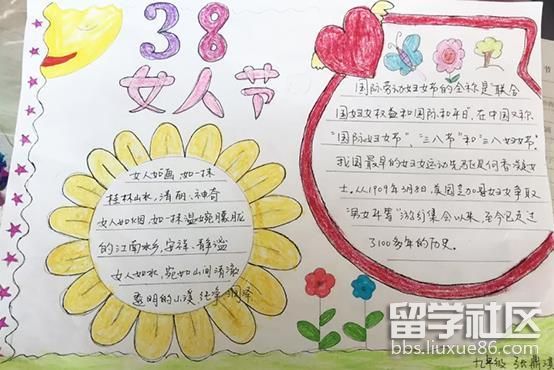 38
女人节
女人如画,如一抹
桂林山水,清丽、神奇
女人如烟,如一抹温婉朦胧
的江南水乡,安祥、静谧
女人如水,宛如山间清澈
透明的小溪,纯净、润泽
国际劳动妇女节的全称是"联合
国妇女权益和国际和平日",在中国又称
"国际妇女节"、"三八节"和"三八妇女节"。
我国最早的妇女运动先驱是何香凝女
士。从1909年3月8日,美国芝加哥妇女争取
"男女平等"游行集会以来,至今已走过
了100多年的历史。
九年级 张
留学社区
bbs.liuxue86.com